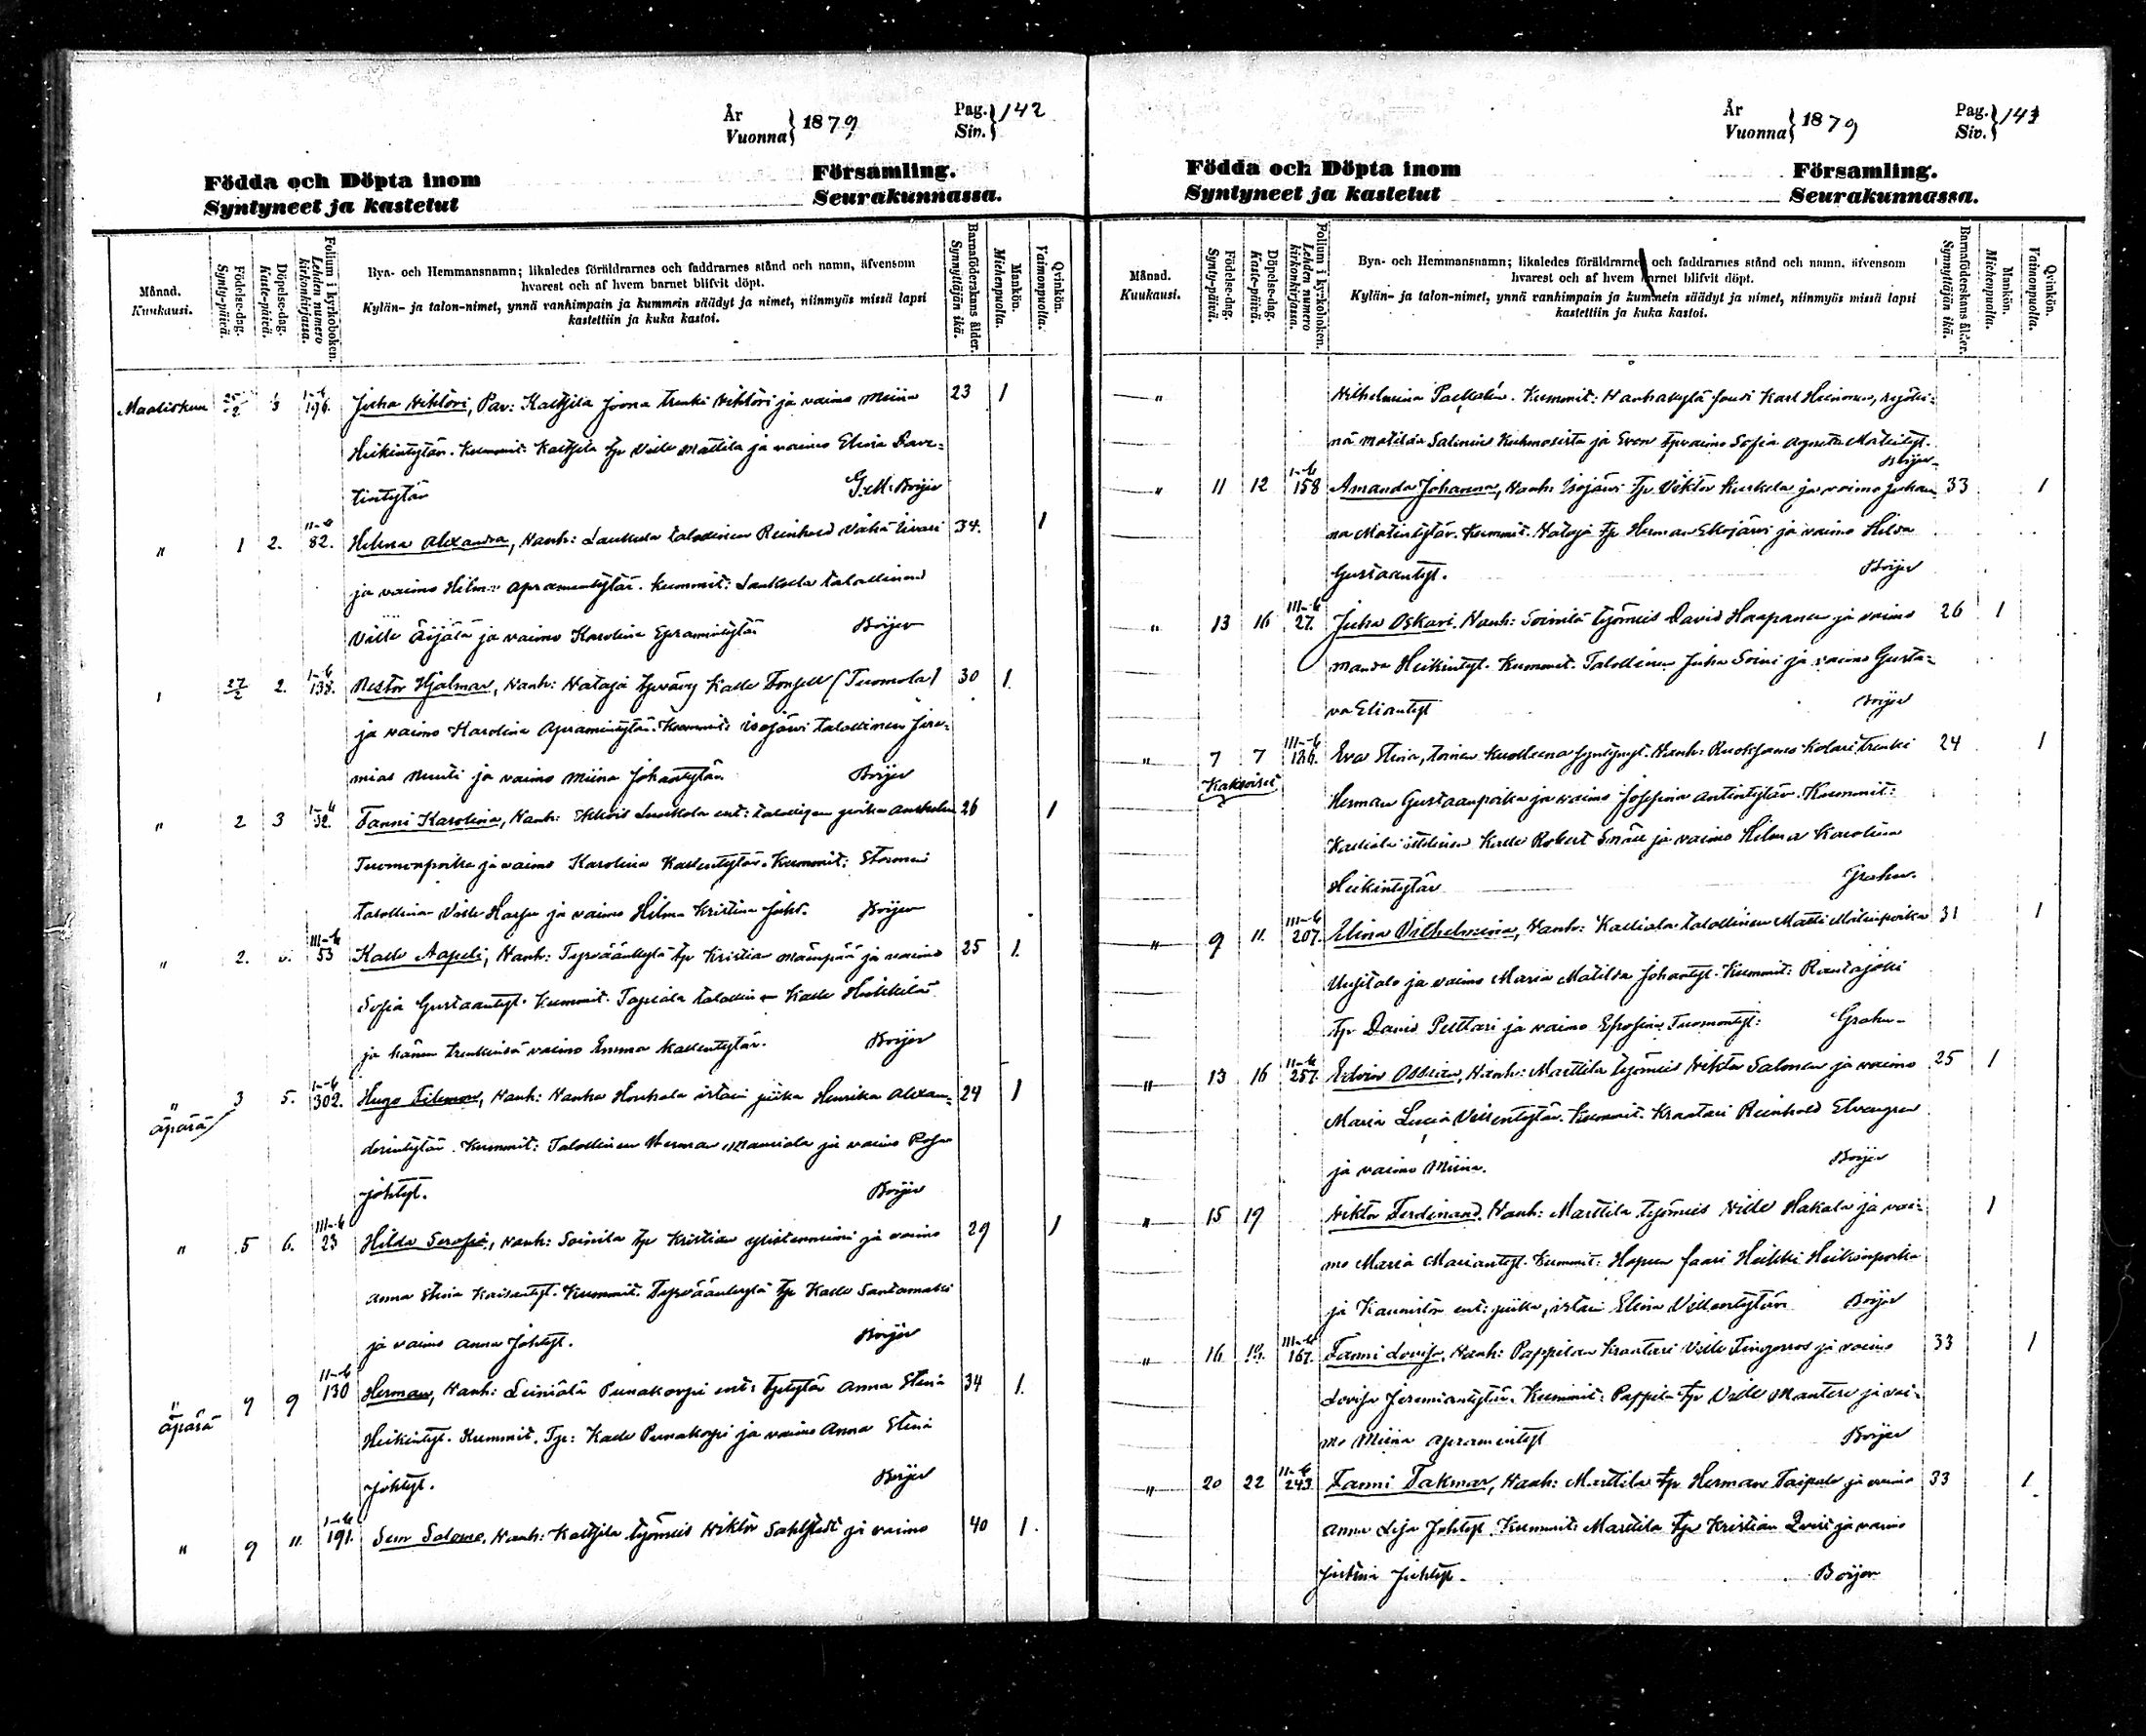 År
Vuonna } 1879
Pag.
Siv. } 142
Födda och Döpta inom Församling.
Syntyneet ja kastetut Seurakunnassa.
Månad.
Kuukausi.
Födelse-dag.
Synty-päivä.
Döpelse-dag.
Kaste-päivä.
Folium i kyrkoboken.
Lehden numero kirkonkirjassa.
Bya- och Hemmansnamn; likaledes föräldrarnes och faddrarnes stånd och namn, äfvensom
hvarest och af hvem barnet blifvit döpt.
Kylän- ja talon-nimet, ynnä vanhimpain ja kummein säädyt ja nimet, niinmyös missä lapsi
kastettiin ja kuka kastoi.
Barnaföderskans ålder.
Synnyttäjän ikä.
Mankön.
Miehenpuolta.
Qvinkön.
Vaimonpuolta.
Maaliskuu 25/2 1/3 I-b 196. Juha Viktori, Kaltsila Joona trenki Viktori ja vaimo Miina 23 1
Heikintytär. Kummit: Kaltsila tp Ville Mattila ja vaimo Elina Dave-
tintytär Boijer
" 1 2. II-b 82. Helma Alexandra, Vanh: Laukkula talollinen Reinhold Vähä Iivari 34. 1
ja vaimo Helma Apramintytär. Kummit: talollinen
Ville Äijälä ja vaimo Karolina Epramintytär Boijer
27/2 2. I-b 138. Nestor Hjalmar, Vanh: Nataja Kalle Fonsell (Tuomola) 30 1
ja vaimo Karolina Apramintytär. Kummit: Isojärvi talollinen Jere-
mias Nuuti ja vaimo Miina Johantytär Boijer
" 2 3 I-b Fanni Karolina, Vanh: talollisen poika 26 1
Tuomonpoika ja vaimo Karolina Kallentytär. Kummit:
talollinen Ville ja vaimo Hilma Kristina Boijer
" 2. III-b 53 Kalle Aapeli, Vanh: Tyrväänkylä tp Kristian Mäenpää ja vaimo 25 1
Sofia Gustaantyt. Kummit. Tapiala talollinen Kalle Heikkilä
ja hänen trenkinsä vaimo Emma Kallentytär. Boijer
" 3 5. I-b 302. Hugo Filemon, Vanh: Vanha Honkala irtain piika Henrika Alexan- 24 1
äpärä
derintytär. Kummit: Talollinen Herman ja vaimo Rosa
Johtyt. Boijer
" 5 6. III-b 23 Hilda Serafia, Vanh: Soinila tp Kristian Ylistenniemi ja vaimo 29 1
Anna Stina Kaisantyt. Kummit. Tyrväänkylä tp Kalle Santamäki
ja vaimo Anna Johtyt. Boijer
" 7 9 II-b 130 Herman, Vanh: Leiniälä Punakorpi ent: tptytär Anna Stina 34 1
äpärä
Heikintyt. Kummit. Tp: Kalle Punakorpi ja vaimo Anna Stina
Johtyt. Boijer
" 9 11. I-b 191. Sem Salomo, Vanh: Kaltsila työmies Viktor Sahlstedt ja vaimo 40 1
År
Vuonna } 1879
Pag.
Siv. } 143
Födda och Döpta inom Församling.
Syntyneet ja kastetut Seurakunnassa.
Månad.
Kuukausi.
Födelse-dag.
Synty-päivä.
Döpelse-dag.
Kaste-päivä.
Folium i kyrkoboken.
Lehden numero kirkonkirjassa.
Bya- och Hemmansnamn; likaledes föräldrarnes och faddrarnes stånd och namn, äfvensom
hvarest och af hvem barnet blifvit döpt.
Kylän- ja talon-nimet, ynnä vanhimpain ja kummein säädyt ja nimet, niinmyös missä lapsi
kastettiin ja kuka kastoi.
Barnaföderskans ålder.
Synnyttäjän ikä.
Mankön.
Miehenpuolta.
Qvinkön.
Vaimonpuolta.
" Vilhelmina Kummit: Vanhakylä Karl Heinonen,
nä Matilda Salenius Kuhmosista ja Even tpvaimo Sofia Agneta Matintyt.
Boijer
" 11 12 I-b 158 Amanda Johanna, Vanh: Isojärvi Tp. Viktor Kurkela ja vaimo Johan- 33 1
na Matintytär. Kummit. Nataja tp Herman Ekojärvi ja vaimo Hilda
Gustaantyt. Boijer
" 13 16 III-b 27. Juha Oskari. Vanh: Soinila työmies David Haapanen ja vaimo 26 1
Manda Heikintyt. Kummit. Talollinen Juha Soini ja vaimo Gusta-
va Eliantyt Boijer
" 7 7 III-b 126. Eva Stina, toinen kuolleena syntynyt. Vanh: Ruoksamo Kolari trenki 24 1
Kaksoiset
Herman Gustaanpoika ja vaimo Josefina Antintytär. Kummit:
Kalliala itellinen Kalle Robert Snäll ja vaimo Hilma Karolina
Heikintytär Grahn.
" 9 11. III-b 207. Elina Vilhelmina, Vanh: Kalliala talollinen Matti Matinpoika 31 1
Uusitalo ja vaimo Maria Matilda Johantyt. Kummit: Rautajoki
tp David Puttari ja vaimo Efrosina Tuomontyt: Grahn
" 13 16 II-b 257. Edvin Ossian, Vanh: Marttila työmies Viktor Salonen ja vaimo 25 1
Maria Lucia Villentytär. Kummit. Kraatari Reinhold Elvengren
ja vaimo Miina. Boijer
" 15 19 Viktor Ferdinand. Vanh: Marttila työmies Ville Hakala ja vai- 1
mo Maria Mariantyt. Kummit: Hapuu faari Heikki Heikinpoika
ja Kauniston ent: piika, irtain Elina Villentytär Boijer
" 16 19. III-b 167. Fanni Lovisa, Vanh: Pappilan kraatari Ville Fingerroos ja vaimo 33 1
Lovisa Jeremiantytär. Kummit: Pappila tp Ville Mantere ja vai-
mo Miina Apramintyt Boijer
" 20 22 II-b 243 Fanni Takmar, Vanh: Marttila tp Herman Taipale ja vaimo 33 1
Anna Lisa Johtyt. Kummit: Marttila tp Kristian Qvist ja vaimo
Justina Juhtyt. Boijer